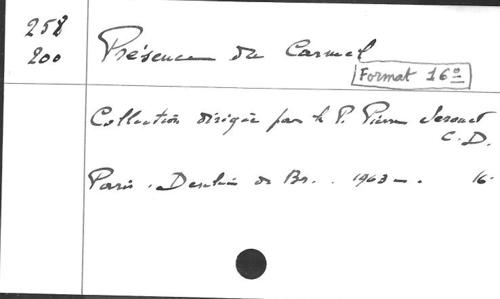 258
200
Présence du Carmel
Format 16º
Collection dirigée par le P. Pierre Serouet
C.D.
Paris. Desclée de Br. . 1963 – . 16º